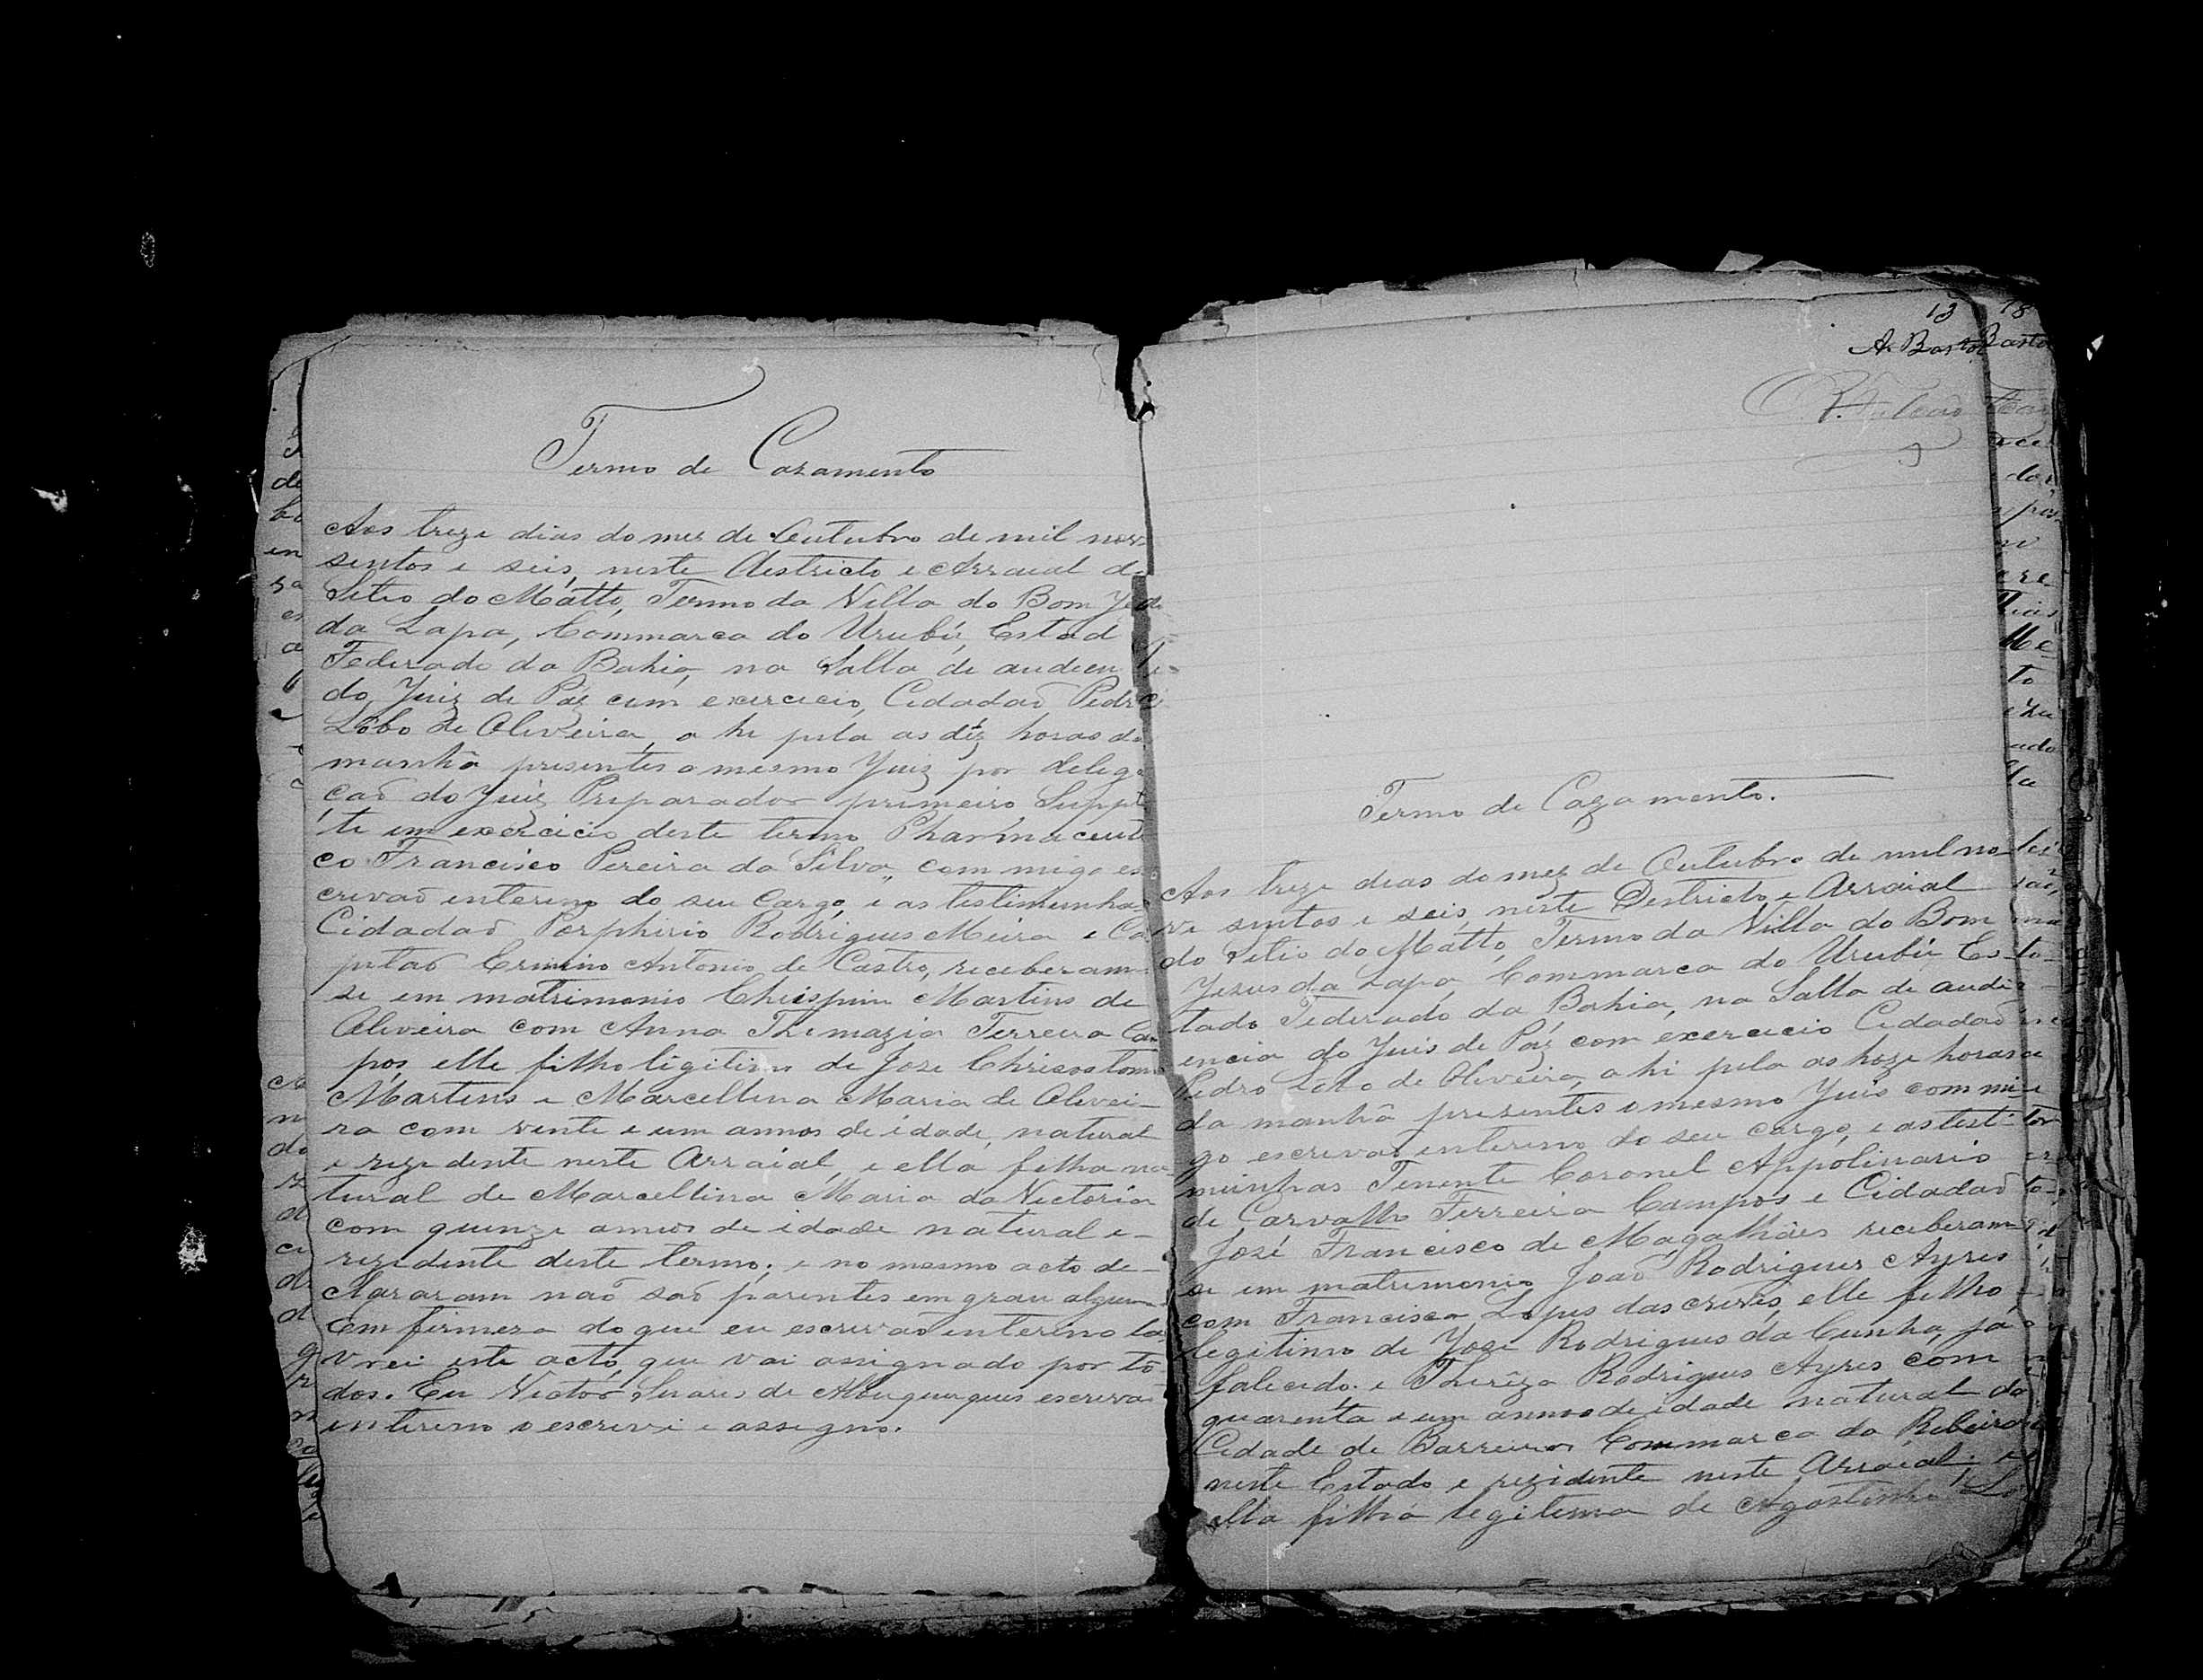 Termo de Cazamento
Aos treze dias do mez de Outubro de mil nove
sentos e seis, neste destricto e Arraial d
Sitio do Matto, Termo da Villa do Bom
da Lapa, Commarca do Urubú, Estad
Federado da Bahia, na Salla de audien
do Juiz de Páz cum exercicio, Cidadaõ Pedro
Lôbo de Oliveira, a hi pela as déz horas da
manhã presentes o mesmo Juiz por deliga
çaõ do Juiz Preparador primeiro Supple
te em exercicio deste termo Pharmaceuti
co Francisco Pereira da Silva, commigo es
crivaõ interino do seu Cargo, e as testimunhas
Cidadaõ Porphirio Rodrigues Meira e Ca
pitaõ Ermino Antonio de Castro, receberam
se em matrimonio Chrispim Martins de
Oliveira com Anna Thomazia Ferreira Cam
pos, elle filho ligitimo de Jose Chrisostomo
Martins e Marcellina Maria de Olivei-
ra com vinte e um annos de idade, natural
e rezidente neste Arraial, e ella filha na
tural de Marcellina Maria da Victoria
com quinze annos de idade natural e-
rezidente deste termo; e no mesmo acto de-
clararam naõ saõ parentes em grau algum
Em firmeza do que eu escrivaõ interino la
vrei este acto, que vai assignado por to
dos. Eu Victor Suares de Albuquerques escrivaõ
interino o escrevi e assigno.
13 18
A. Bastos Bastos
Termo de Cazamento.
Aos treze dias do mez de Outubro de mil no
ve sentos e seis, neste Destricto e Arraial
do Sitio do Matto, Termo da Villa do Bom
Jezus da Lapa, Commarca do Urubú Es
tado Federado da Bahia, na Salla de audi
encia do Juis de Páz com exercicio Cidadaõ
Pedro Lobo de Oliveira, a hi pela as hoze horas
da manhã prezentes o mesmo Juis commi
go escrivaõ interino do seu cargo, e as testi
munhas Tenente Coronel Appolinario
de Carvalho Ferreira Campos e Cidadaõ
José Francisco de Magalhães receberam
se em matrimonio Joaõ Rodrigues Ayres
com Francisca Lopes das, elle filho
legitimo de José Rodrigues da Cunha, já
falicido e Therêza Rodrigues Ayres com
quarenta e um annos de idade natural da
Cidade de Barreiras Commarca da Ribeira
neste Estado e rezidente neste Arraial; e
ella filha legitima de Agostinho Lo